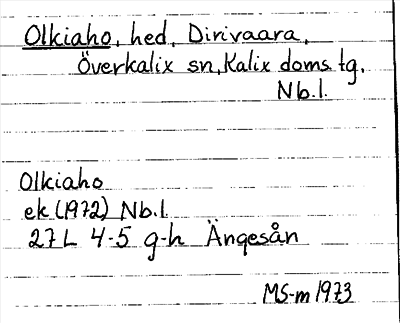 Olkiaho, hed, Dirivaara,
Överkalix sn, Kalix doms. tg,
Nb.l.
Olkiaho
ek (1972) Nb.l.
27L 4-5 g-h Ängesån
MS-m 1973